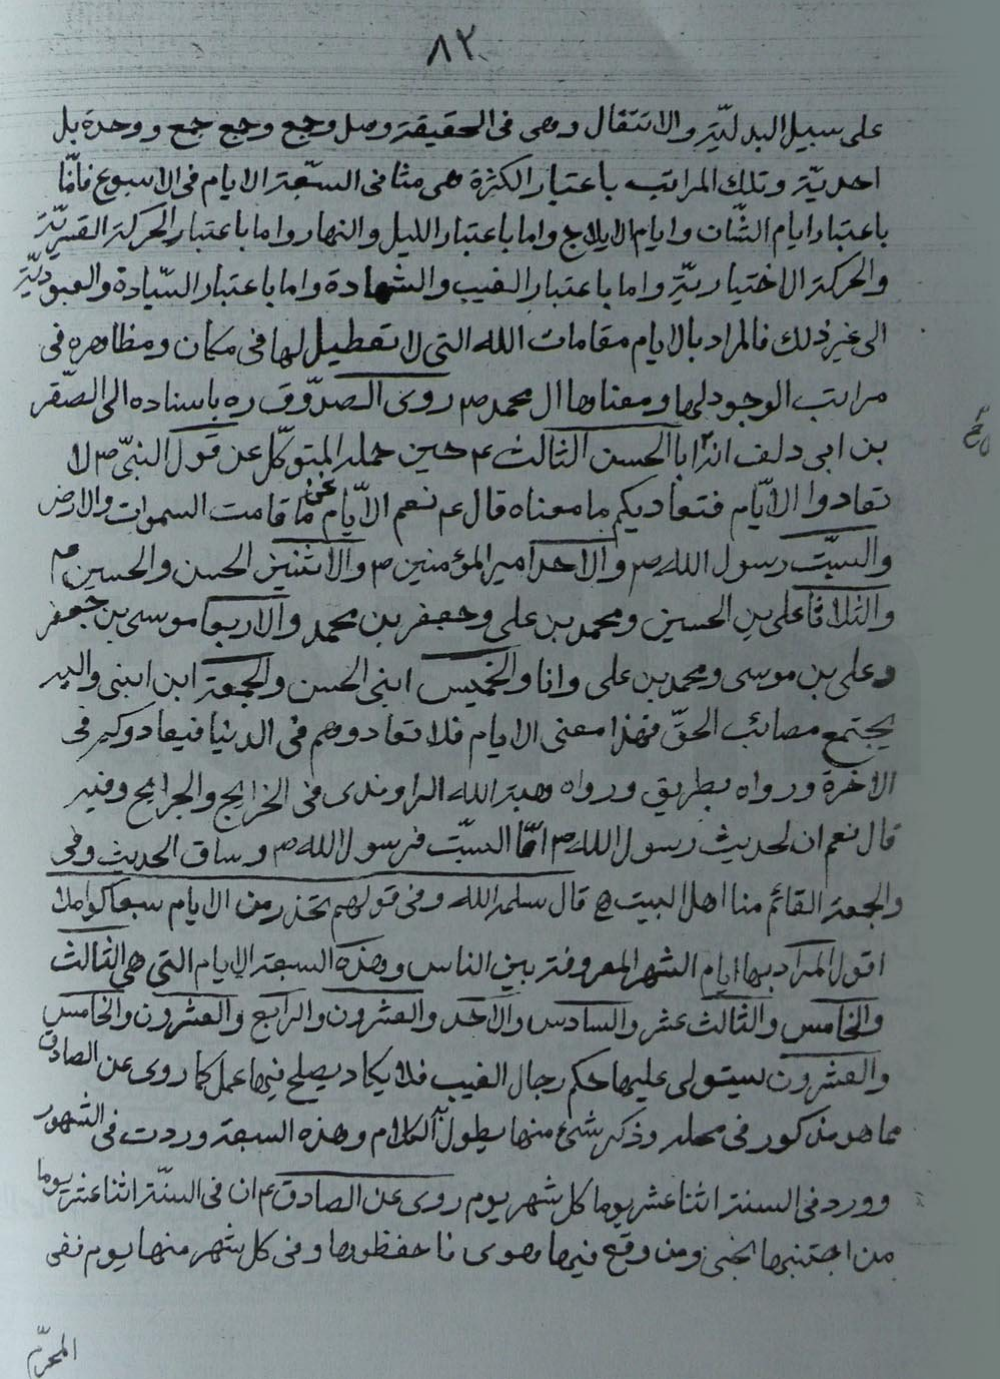 ٨٢
على سبيل البدليّة والانتقال وهى فى الحقيقة وصل وجع وجع جمع ووحدة بل
احديّة وتلك المراتب باعتبار الكثرة هى مثا فى السبعة الايام فى الاسبوع فامّا
باعتبار ايام الشّان وايام الايلاج واما باعتبار الليل والنهار واما باعتبار الحركة القسريّة
والحركة الاختياريّة واما باعتبار الغيب والشهادة واما باعتبار السّيادة والعبوديّة
الى غير ذلك فالمراد بالايام مقامات الله التى لا تعطيل لها فى مكان ومظاهره فى
مراتب الوجود لها ومعناها ال محمد ص روى الصدّوق ره باسناده الى الصّقر
بن ابى دلف انه ابا الحسن الثالث ع حين حمله المتوكّل عن قول النبىّ ص لا
تعادوا الايّام فتعاديكم ما معناه قال ع نعم الايّام نحن ما قامت السموات والارض
والسبّت رسول الله ص والاحد امير المؤمنين ص والاثنين الحسن والحسين ع
والثلاثا على بن الحسين ومحمد بن على وجعفر بن محمد والاربعا موسى بن جعفر
وعلى بن موسى ومحمد بن على وانا والخميس ابنى الحسن والجمعة ابن ابنى واليه
يجتمع عصائب الحقّ فهذا معنى الايام فلا تعادوهم فى الدنيا فيعادوكم فى
الاخرة ورواه بطريق ورواه هبة الله الراوندى فى الخرايج والجرايح وفيه
قال نعم ان لحديث رسول الله ص امّا السبّت فرسول الله ص وساق الحديث وفى
والجمعة القائم منا اهل البيت ع قال سلمه الله وفى قولهم تحذر من الايام سبعا كواملا
اقول المراد بها ايام الشهر المعروفة بين الناس وهذه السبعة الايام التى هى الثالث
والخامس والثالث عشر والسادس والاحد والعشرون والرابع والعشرون والخامس
والعشرون يستولى عليها حكم رجال الغيب فلا يكاد يصلح فيها عمل كما روى عن الصادق
مما هو مذكور فى محله وذكر شئ منها يطول به الكلام وهذه السبعة وردت فى الشهور
وورد فى السنة اثنا عشر يوما كل شهر يوم روى عن الصادق ع ان فى السنّة اثنا عشر يوما
من اجتنبها نجى ومن وقع فيها هوى فاحفظوها وفى كل شهر منها يوم ففى
المحرّم